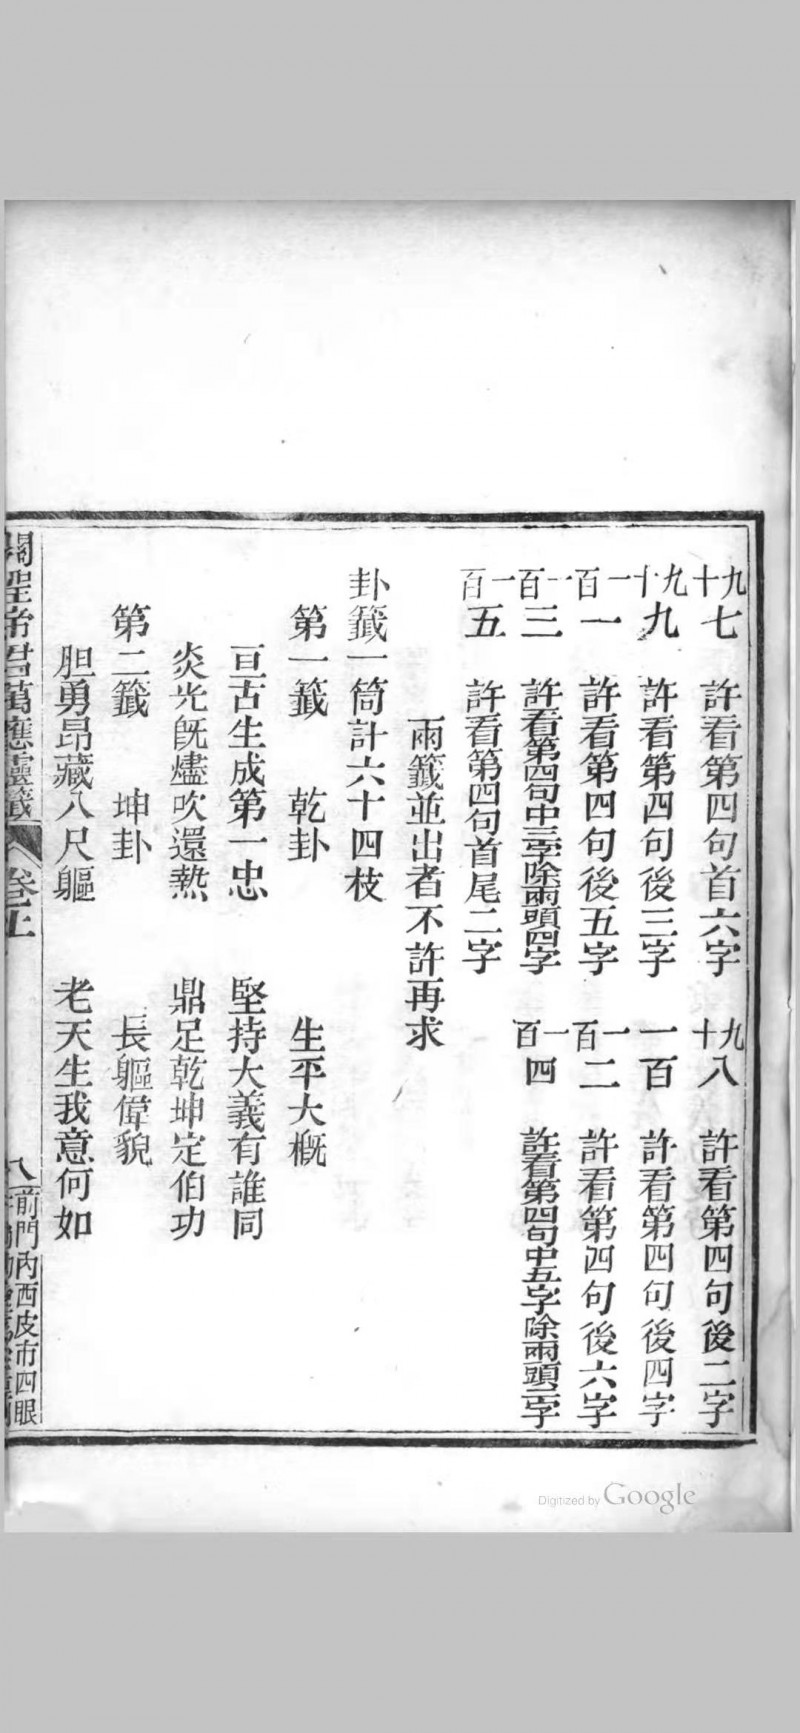 九十七　許看第四句首六字　九十八　許看第四句後二字
九十九　許看第四句後三字　一百　許看第四句後四字
一百一　許看第四句後五字　一百二　許看第四句後六字
一百三　許看第四句中三字除兩頭四字　一百四　許看第四句中五字除兩頭二字
一百五　許看第四句首尾二字
兩籤並出者不許再求
卦籤一筒計六十四枝
第一籤　乾卦　生平大概
亘古生成第一忠　堅持大義有誰同
炎光旣燼吹還熱　鼎足乾坤定伯功
第二籤　坤卦　長軀偉貌
胆勇昂藏八尺軀　老天生我意何如
關聖帝君萬應靈籤　卷上　八
前門內西皮市四眼
Digitized by Google